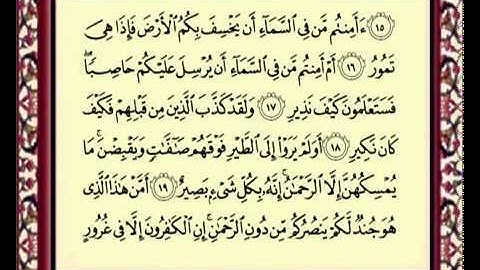 ﴿١٥﴾ ءَأَمِنتُم مَّن فِي ٱلسَّمَآءِ أَن يَخْسِفَ بِكُمُ ٱلْأَرْضَ فَإِذَا هِىَ
تَمُورُ ﴿١٦﴾ أَمْ أَمِنتُم مَّن فِي ٱلسَّمَآءِ أَن يُرْسِلَ عَلَيْكُمْ حَاصِبًا ۖ
فَسَتَعْلَمُونَ كَيْفَ نَذِيرِ ﴿١٧﴾ وَلَقَدْ كَذَّبَ ٱلَّذِينَ مِن قَبْلِهِمْ فَكَيْفَ
كَانَ نَكِيرِ ﴿١٨﴾ أَوَلَمْ يَرَوْا۟ إِلَى ٱلطَّيْرِ فَوْقَهُمْ صَـٰٓفَّـٰتٍ وَيَقْبِضْنَ ۚ مَا
يُمْسِكُهُنَّ إِلَّا ٱلرَّحْمَـٰنُ ۚ إِنَّهُۥ بِكُلِّ شَىْءٍۭ بَصِيرٌ ﴿١٩﴾ أَمَّنْ هَـٰذَا ٱلَّذِى
هُوَ جُندٌ لَّكُمْ يَنصُرُكُم مِّن دُونِ ٱلرَّحْمَـٰنِ ۚ إِنِ ٱلْكَـٰفِرُونَ إِلَّا فِى غُرُورٍ